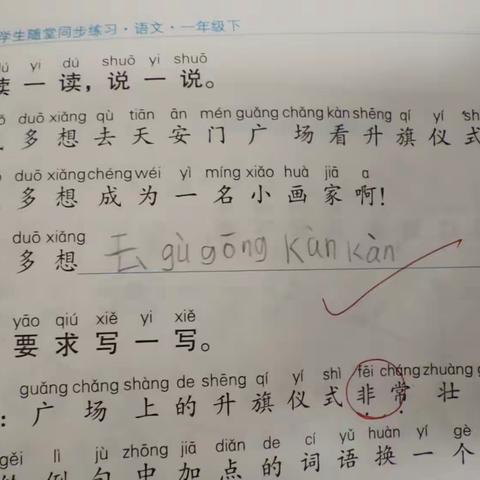 学生随堂同步练习·语文·一年级下
yi dú shuō yi shuō
读一读，说一说。
duō xiǎng qù tiān ān mén guǎng chǎng kàn shēng qí yí shì
多想去天安门广场看升旗仪式
duō xiǎng chéng wéi yì míng xiǎo huà jiā a
多想成为一名小画家啊！
duō xiǎng
多想 去 gù gōng kàn kàn
yāo qiú xiě yi xiě
要求写一写。
guǎng chǎng shàng de shēng qí yí shì fēi cháng zhuàng
：广场上的升旗仪式非常壮
gěi lì jù zhōng jiā diǎn de cí yǔ huàn yí gè
例句中加点的词语换一个